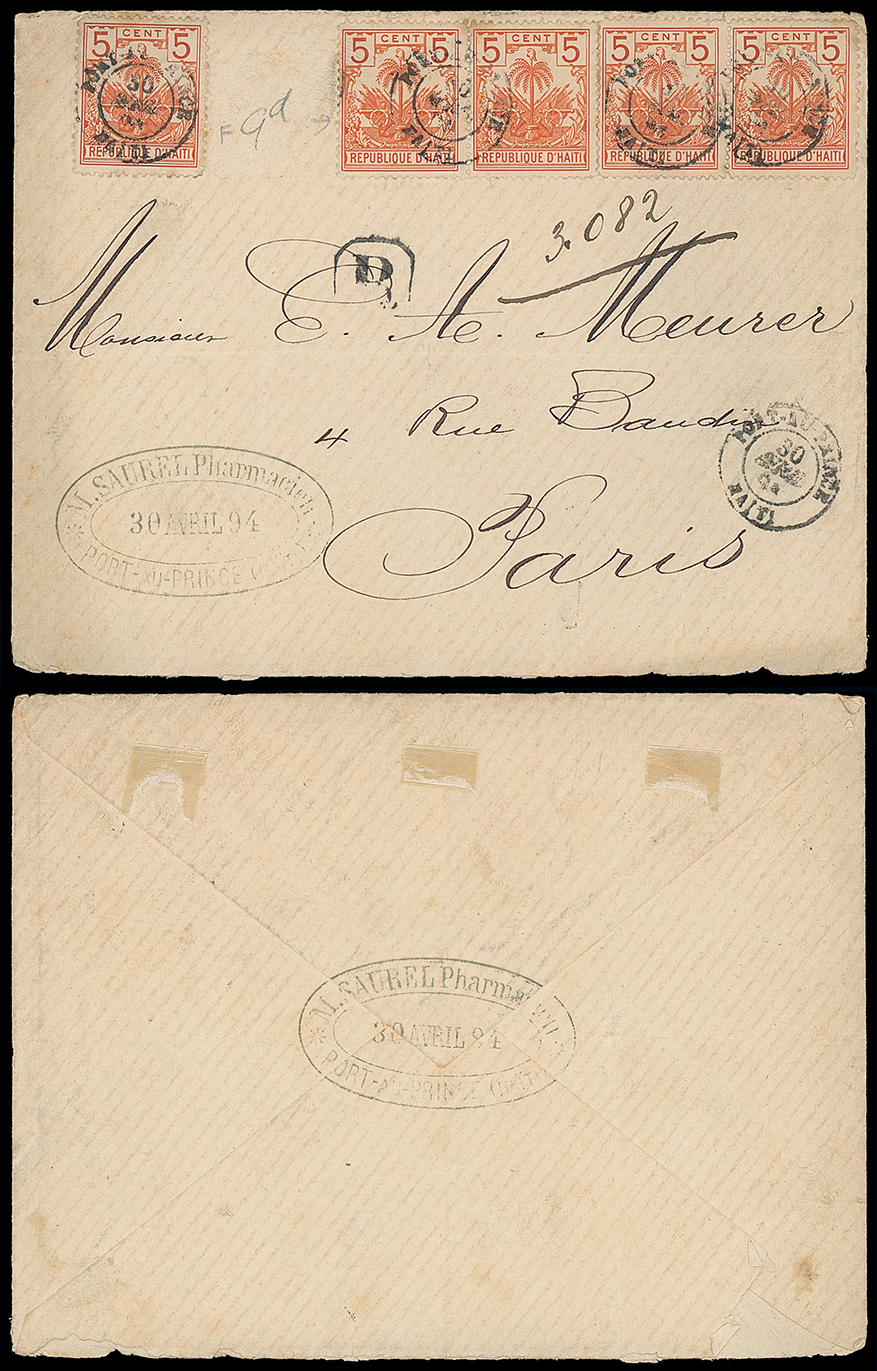 5 CENT 5
REPUBLIQUE D'HAITI
5 CENT 5
REPUBLIQUE D'HAITI
5 CENT 5
REPUBLIQUE D'HAITI
5 CENT 5
REPUBLIQUE D'HAITI
5 CENT 5
REPUBLIQUE D'HAITI
PORT-AU-PRINCE
30
HAITI
F 9d →
3.082
R
Monsieur E. A. Meurer
4 Rue Baudin
Paris
PORT-AU-PRINCE
30
HAITI
M. SAUREL Pharmacien
30 AVRIL 94
PORT-AU-PRINCE (HAITI)
M. SAUREL Pharmacien
30 AVRIL 94
PORT-AU-PRINCE (HAITI)